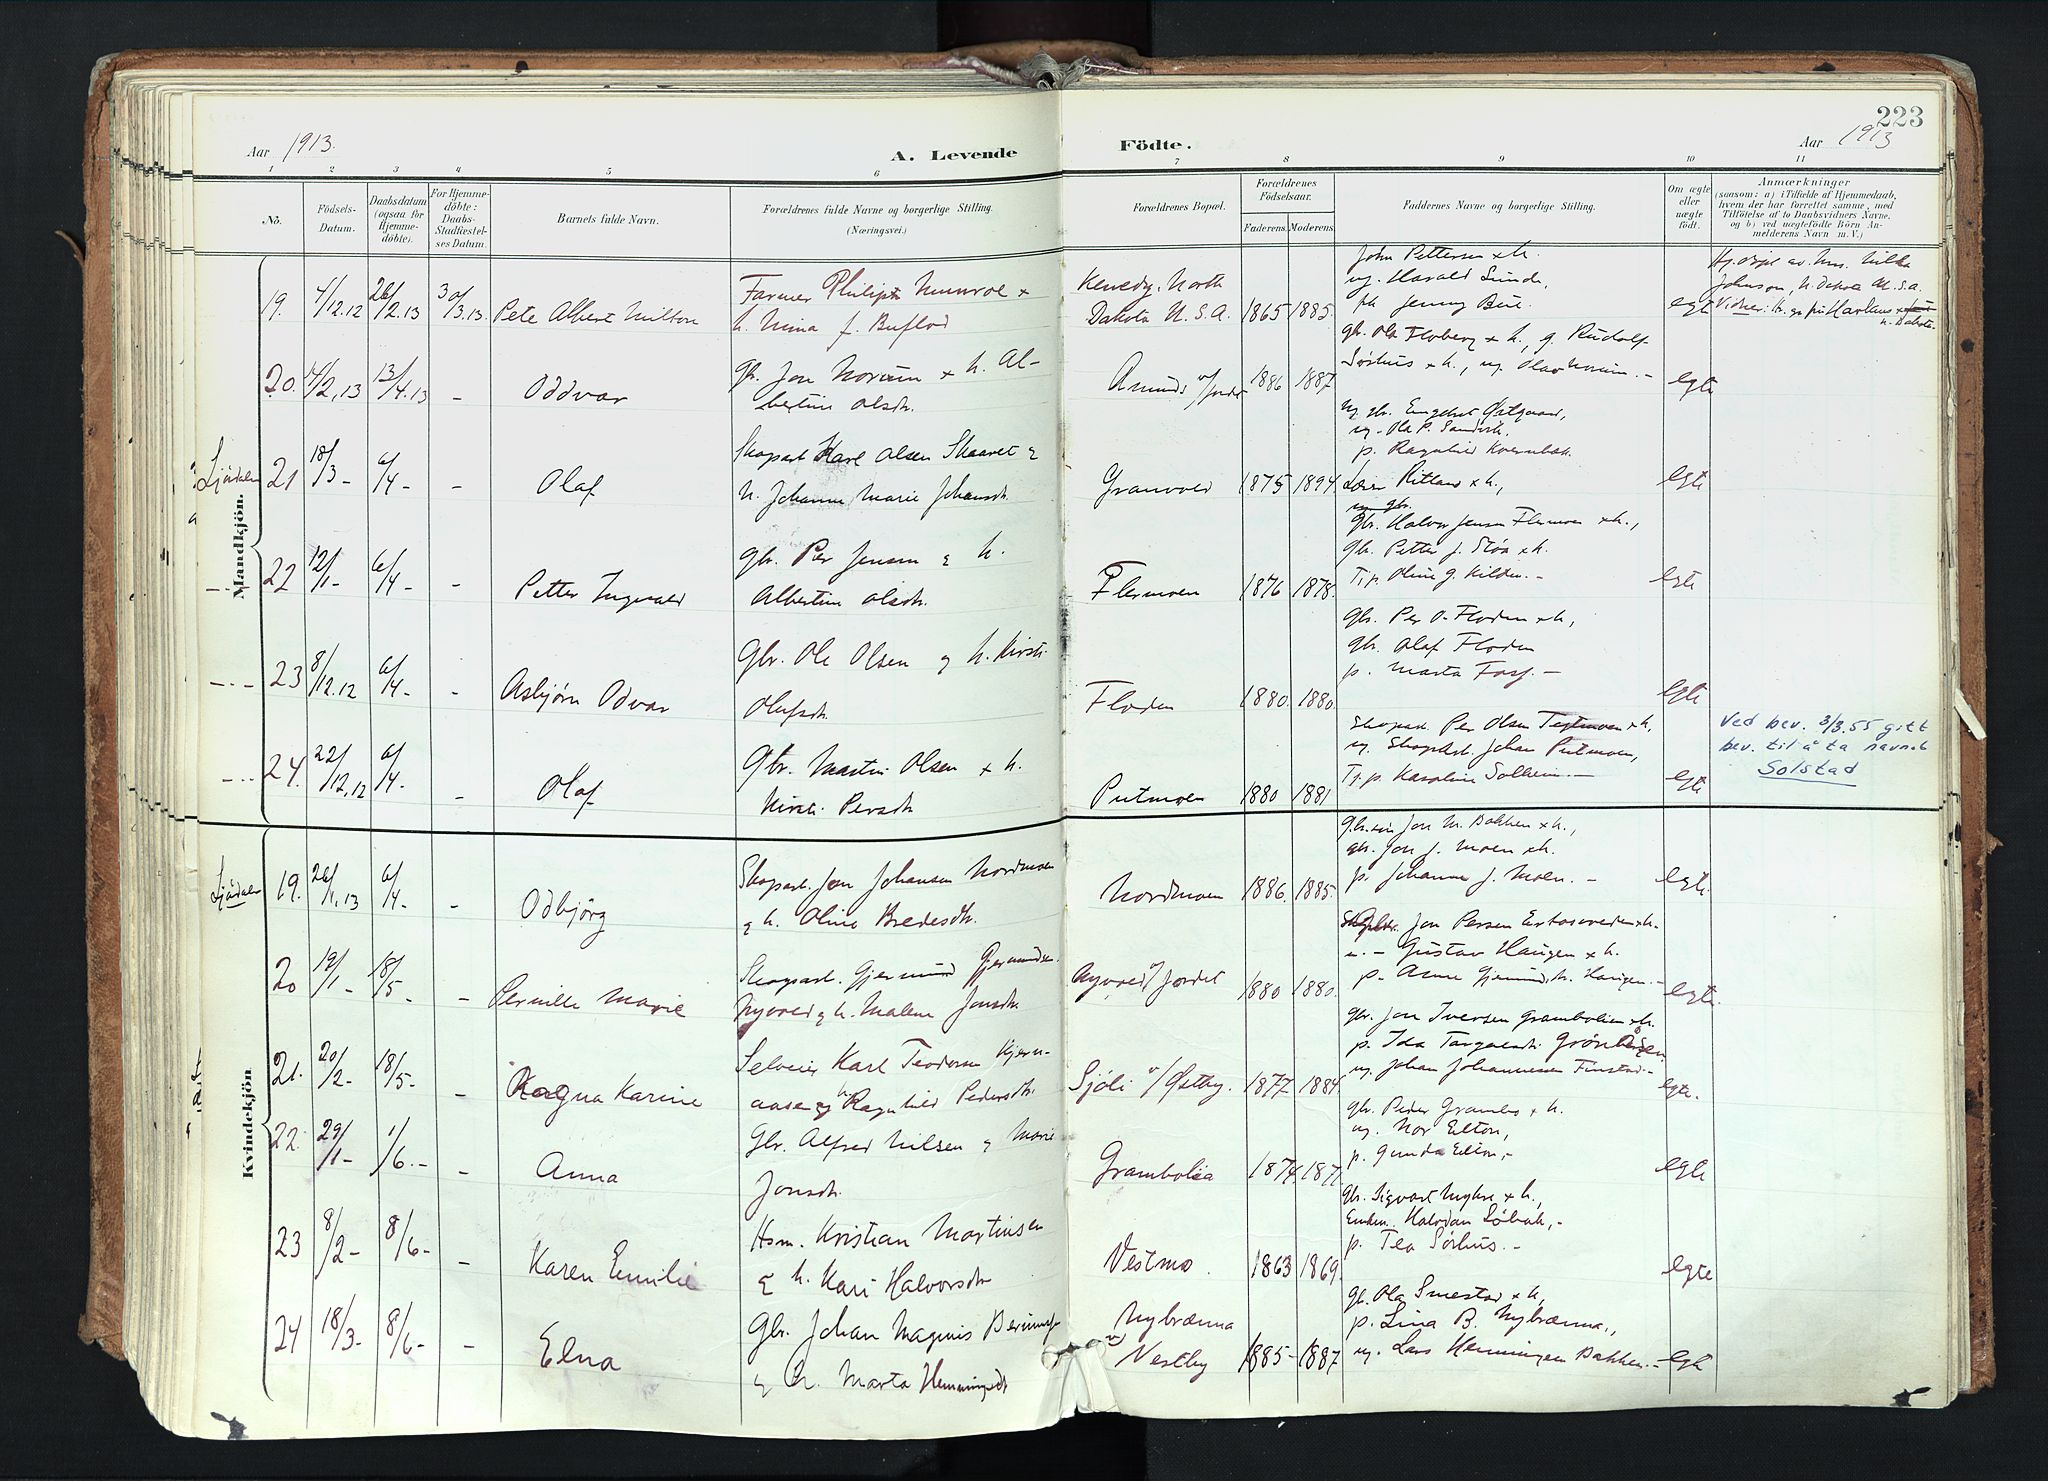 223
Aar 1913. A. Levende Födte. Aar 1913
1 2 3 4 5 6 7 8 9 10 11
No.
Födsels-Datum.
Daabsdatum (ogsaa for Hjemme-döbte).
For Hjemme-döbte: Daabs-Stadfæstel-ses Datum.
Barnets fulde Navn.
Forældrenes fulde Navne og borgerlige Stilling. (Næringsvei.)
Forældrenes Bopæl.
Forældrenes Födselsaar.
Faderens. Moderens.
Faddernes Navne og borgerlige Stilling.
Om ægte eller uægte födt.
Anmærkninger
(saasom: a) i Tilfælde af Hjemmedaab, hvem der har forrettet samme, med Tilföielse af to Daabsvidners Navne. og b) ved uægtefödte Börn An-melderens Navn m. V.)
Mandkjön.
19. 4/12.12 26/2.13 30/3.13. Pete Albert Milton
Farmer Philip Munroe x
h. Mina f. Buflod
North
Dakota U.S.A. 1865 1885.
John Pettersen x h.
ug. Harald Sunde,
pk Jenny Bue. egte
Johnson, N. Dakota U.S.A.
20. 4/2,13 13/4.13 - Oddvar
gbr. Jon Norum x h. Al-
bertine Olsdtr.
1886 1887
gbr. Ola Floberg x h., g. Rudolf
Sørhus x h., ug. Olav Norum. - egte
Ljördalen 21 18/3 - 6/4 - - Olaf
Skogsarb. Karl Olsen Skaaret &
h. Johanne Marie Johansdtr.
Granvold 1875 1894.
ug. Ola P. Sandvik.
p. Ragnhild Kvernbak.
Lærer Ritland x h., egte
-"- 22 12/1 - 6/4 - - Petter Ingvald
gbr. Per Jensen & h.
Albertine Olsdtr.
Flermoen 1876 1878.
gbr. Halvor Jensen Flermoen x h.,
gbr. Petter J. Støa x h.
Tj.p. Oline G. Kilden. - egte
-"- 23 8/12.12 6/4 - - Asbjørn Odvar
Gbr. Ole Olsen & h. Kirsti
Olufsdtr.
Floden 1880. 1880.
gbr. Per O. Floden x h.,
gbr. Olaf Floden
p. Marta Foss. - egte
-"- 24. 22/12,12 6/4 - - Olaf
Gbr. Martin Olsen x h.
Persdtr.
Putmoen 1880 1881
Skogsarb. Per Olsen x h.,
ug. Skogsarb. Johan Putmoen,
Tj.p. Karoline Solheim. - egte
Ved bev. 3/3.55 gitt
bev. til å ta navnet
Solstad
Kvindekjön
Ljördalen 19. 26/1.13 6/4 - - Odbjörg
Skogsarb. Jon Johansen Nordmoen
& h. Oline Bredesdtr.
Nordmoen 1886. 1885.
Gbr.sön Jon M. Bakken x h.,
gbr. Jon J. Moen x h.
p. Johanne J. Moen. - egte.
20 19/1 - 18/5 - - Pernille Marie
Skogsarb. Gjermund Gjermundsen
Nyvold & h. Malene Jonsdtr.
Nyvold v/ Jordet 1880 1880.
Jon Persen x h.
" - Gustav Haugen x h.
p. Anne Haugen. - egte.
21. 20/2 - 18/5 - - Ragna Karine
Selveier Karl Teodorsen Kjern-
aasen & h. Ragnhild Pedersdtr.
Sjöli v/ Østby. 1877 1884.
gbr. Jon Iversen Grambolien x h.
p. Ida
ug. Johan Johannessen Finstad - egte.
22. 29/1 - 1/6. - - Anna
Gbr. Alfred Nilsen & Marie
Jonsdtr.
Grambolia 1874 1871.
gbr. Peder Grambo x h.
ug. Nor Elton,
p. Gunda Elton, - egte
23 8/2 - 8/6 - - Karen Emilie
Hsm. Kristian Martinsen
& h. Kari Halvorsdtr
Vestmo. 1863 1869.
gbr. Sigvart x h.,
Halvdan Söbak, -
p. Tea Sørhus. - egte
24 18/3 - 8/6 - - Elna
Gbr. Johan Magnus
& h. Marta Hemmingsdtr
Nybrænna
v/ Vestby 1885 - 1887
gb. Ola Smestad x h,
p. Lina B. Nybrænna.,
ug. Lars Henningsen Bakken. - egte